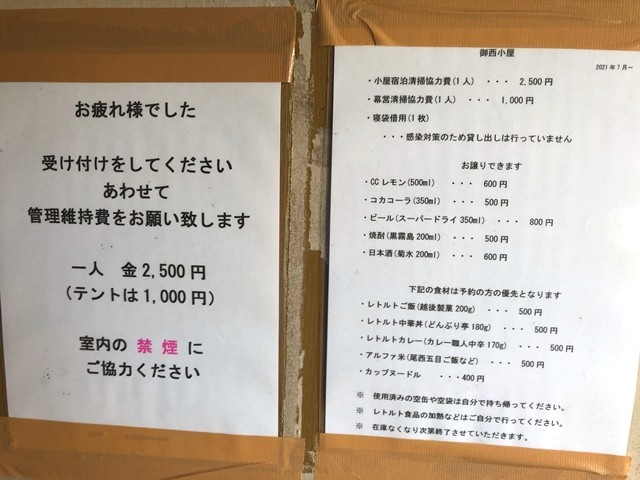 お疲れ様でした
受け付けをしてください
あわせて
管理維持費をお願い致します
一人 金2,500円
（テントは1,000円）
室内の 禁煙 に
ご協力ください
御西小屋
2021年7月～
・小屋宿泊清掃協力費(1人) ・・・ 2,500円
・幕営清掃協力費(1人) ・・・ 1,000円
・寝袋借用(1枚)
・・・感染対策のため貸し出しは行っていません
お譲りできます
・CCレモン(500ml) ・・・ 600円
・コカコーラ(350ml) ・・・ 500円
・ビール(スーパードライ350ml) ・・・ 800円
・焼酎(黒霧島200ml) ・・・ 500円
・日本酒(菊水200ml) ・・・ 600円
下記の食材は予約の方の優先となります
・レトルトご飯(越後製菓200g) ・・・ 500円
・レトルト中華丼(どんぶり亭180g) ・・・ 500円
・レトルトカレー(カレー職人中辛170g) ・・・ 500円
・アルファ米(尾西五目ご飯など) ・・・ 500円
・カップヌードル ・・・400円
※ 使用済みの空缶や空袋は自分で持ち帰ってください。
※ レトルト食品の加熱などはご自分で行ってください。
※ 在庫なくなり次第終了させていただきます。